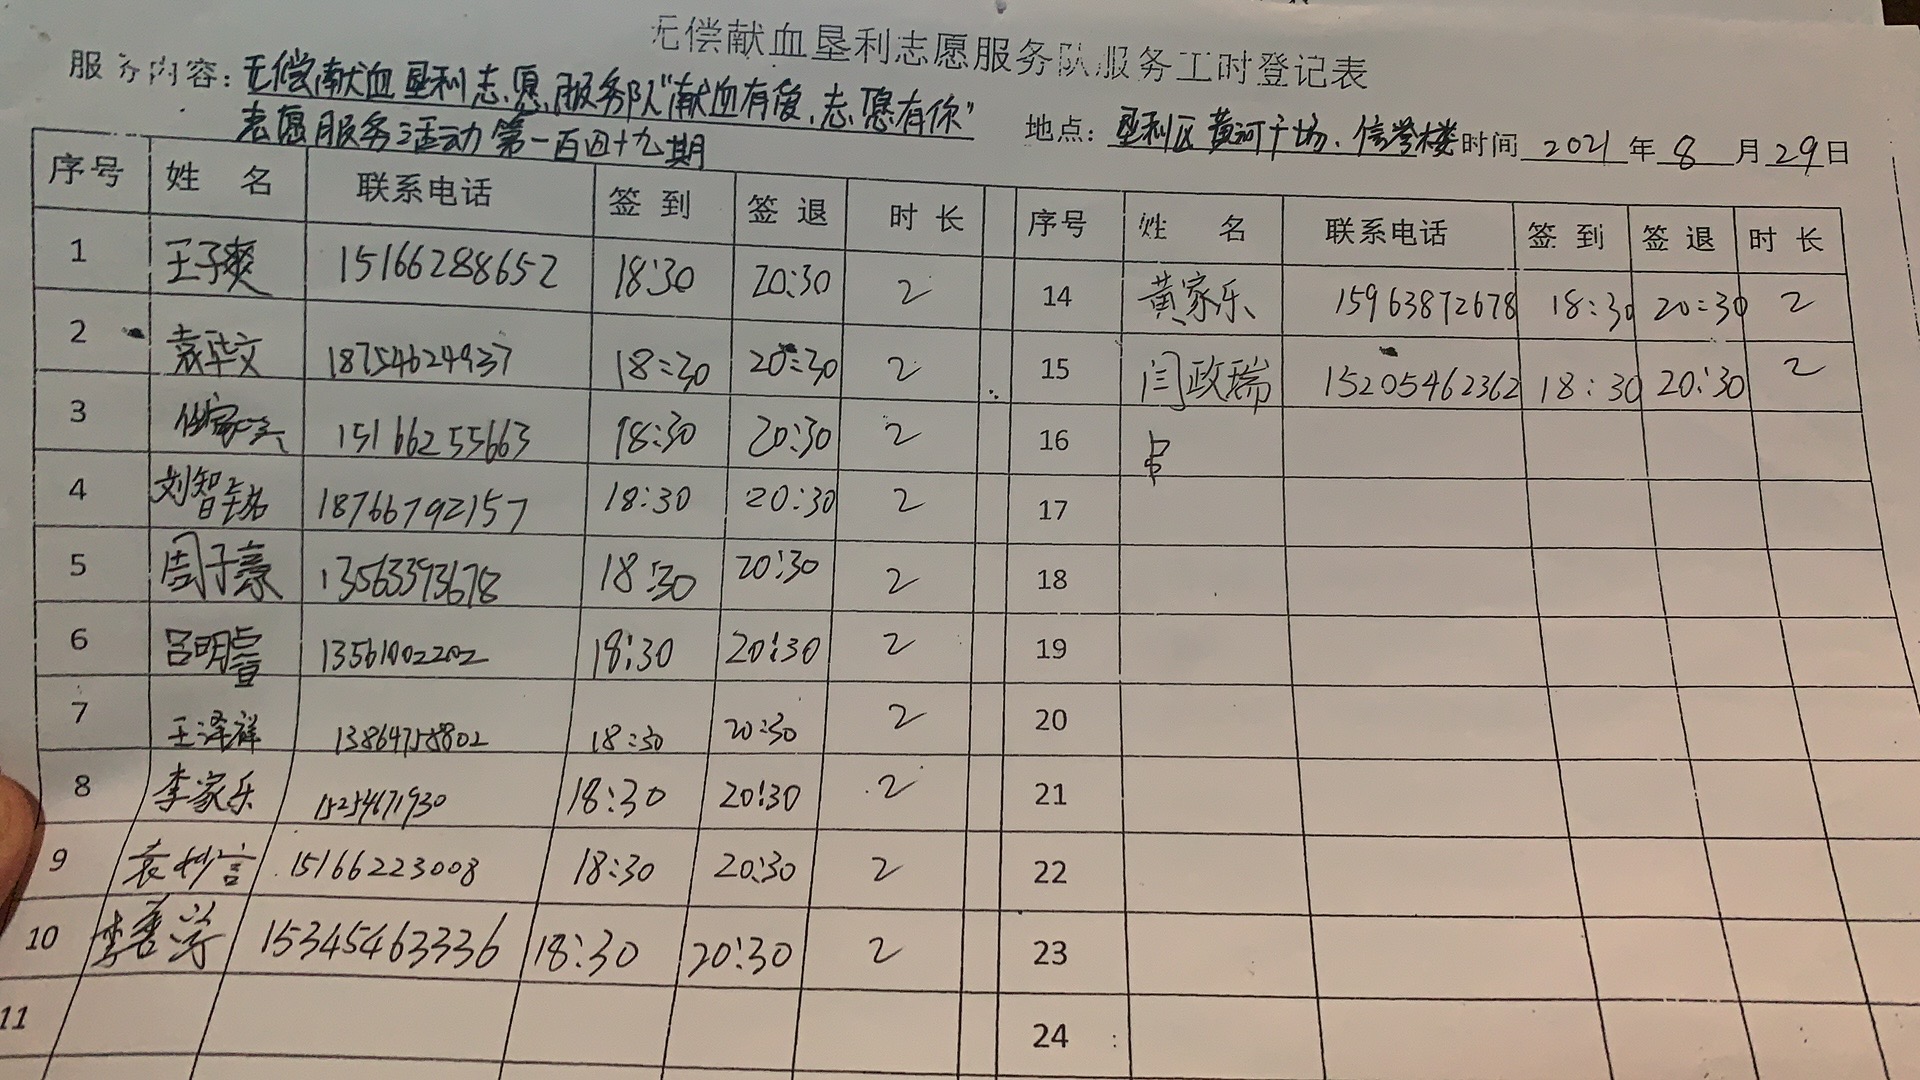 无偿献血垦利志愿服务队服务工时登记表
服务内容：无偿献血垦利志愿服务队“献血有爱，志愿有你”
志愿服务活动第一百四十九期 地点：垦利区黄河广场、信誉楼 时间 2021 年 8 月 29 日
序号 姓名 联系电话 签到 签退 时长 序号 姓名 联系电话 签到 签退 时长
1 王子爽 15166288652 18:30 20:30 2 14 黄家乐 15963872678 18:30 20:30 2
2 袁华文 18754624937 18:30 20:30 2 15 闫政瑞 15205462362 18:30 20:30 2
3 15166255663 18:30 20:30 2 16
4 刘智铭 18766792157 18:30 20:30 2 17
5 周子豪 13563393678 18:30 20:30 2 18
6 吕明 13561002202 18:30 20:30 2 19
7 王泽祥 13864758802 18:30 20:30 2 20
8 李家乐 15254671930 18:30 20:30 2 21
9 袁妙言 15166223008 18:30 20:30 2 22
10 李 15345463336 18:30 20:30 2 23
11 24